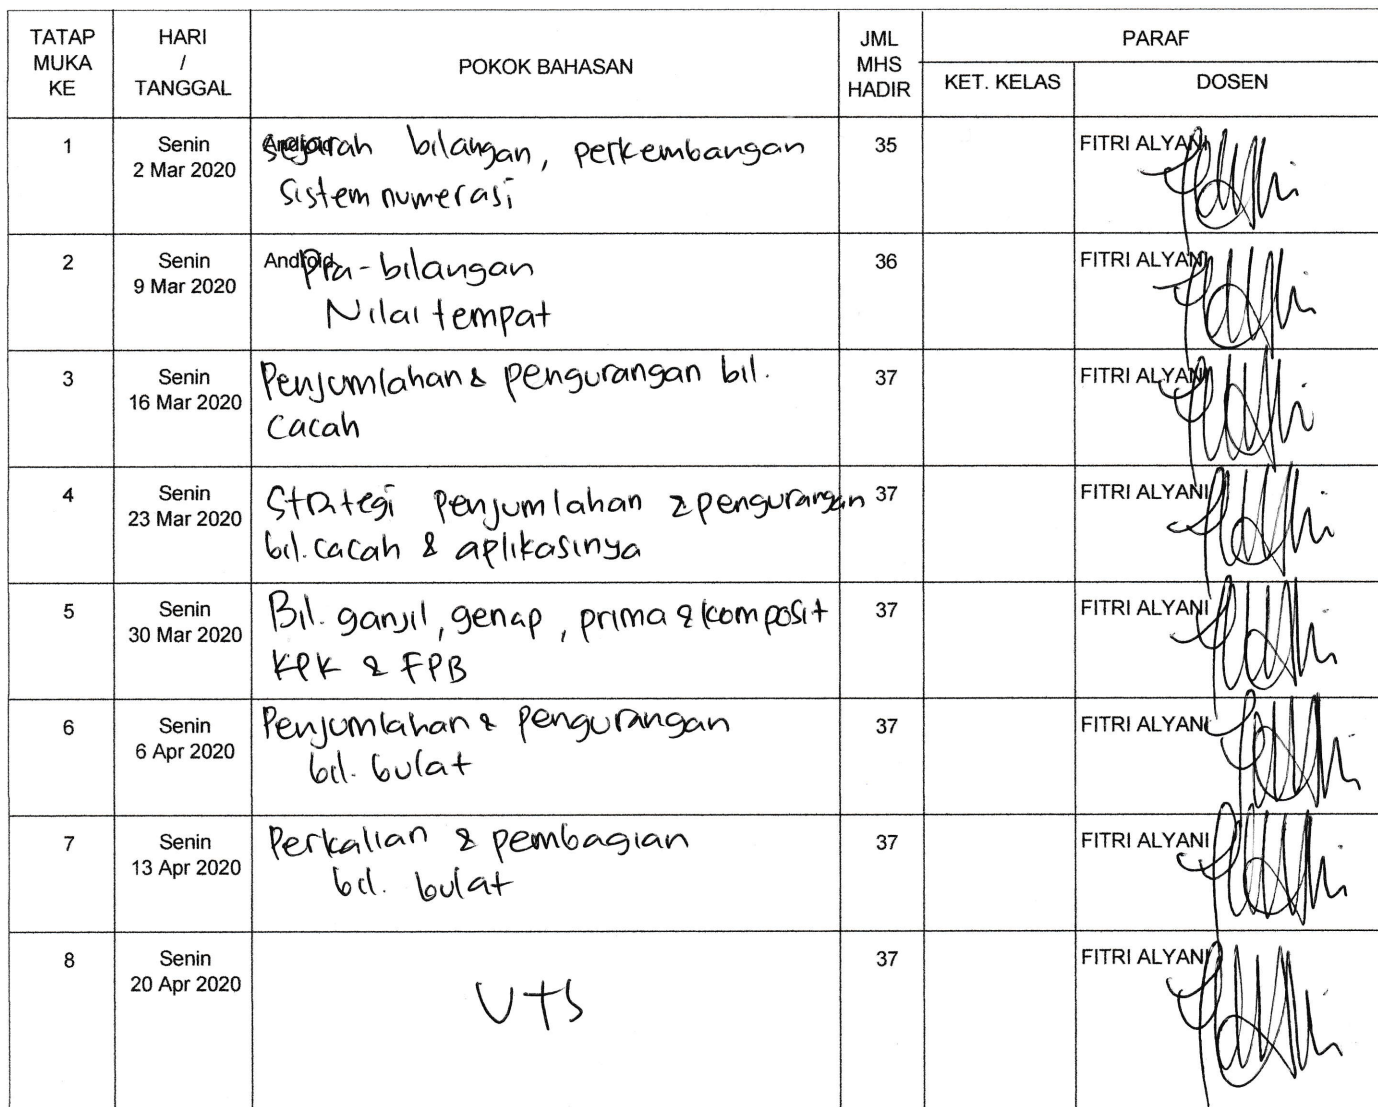 TATAP MUKA KE
HARI / TANGGAL
POKOK BAHASAN
JML MHS HADIR
PARAF
KET. KELAS
DOSEN
1
Senin
2 Mar 2020
Android
sejarah bilangan, perkembangan
sistem numerasi
35
FITRI ALYANI
2
Senin
9 Mar 2020
Android
Pra-bilangan
Nilai tempat
36
FITRI ALYANI
3
Senin
16 Mar 2020
Penjumlahan & pengurangan bil.
Cacah
37
FITRI ALYANI
4
Senin
23 Mar 2020
Strategi Penjumlahan & pengurangan
bil. cacah & aplikasinya
37
FITRI ALYANI
5
Senin
30 Mar 2020
Bil. ganjil, genap, prima & komposit
KPK & FPB
37
FITRI ALYANI
6
Senin
6 Apr 2020
Penjumlahan & pengurangan
bil. bulat
37
FITRI ALYANI
7
Senin
13 Apr 2020
Perkalian & pembagian
bil. bulat
37
FITRI ALYANI
8
Senin
20 Apr 2020
UTS
37
FITRI ALYANI